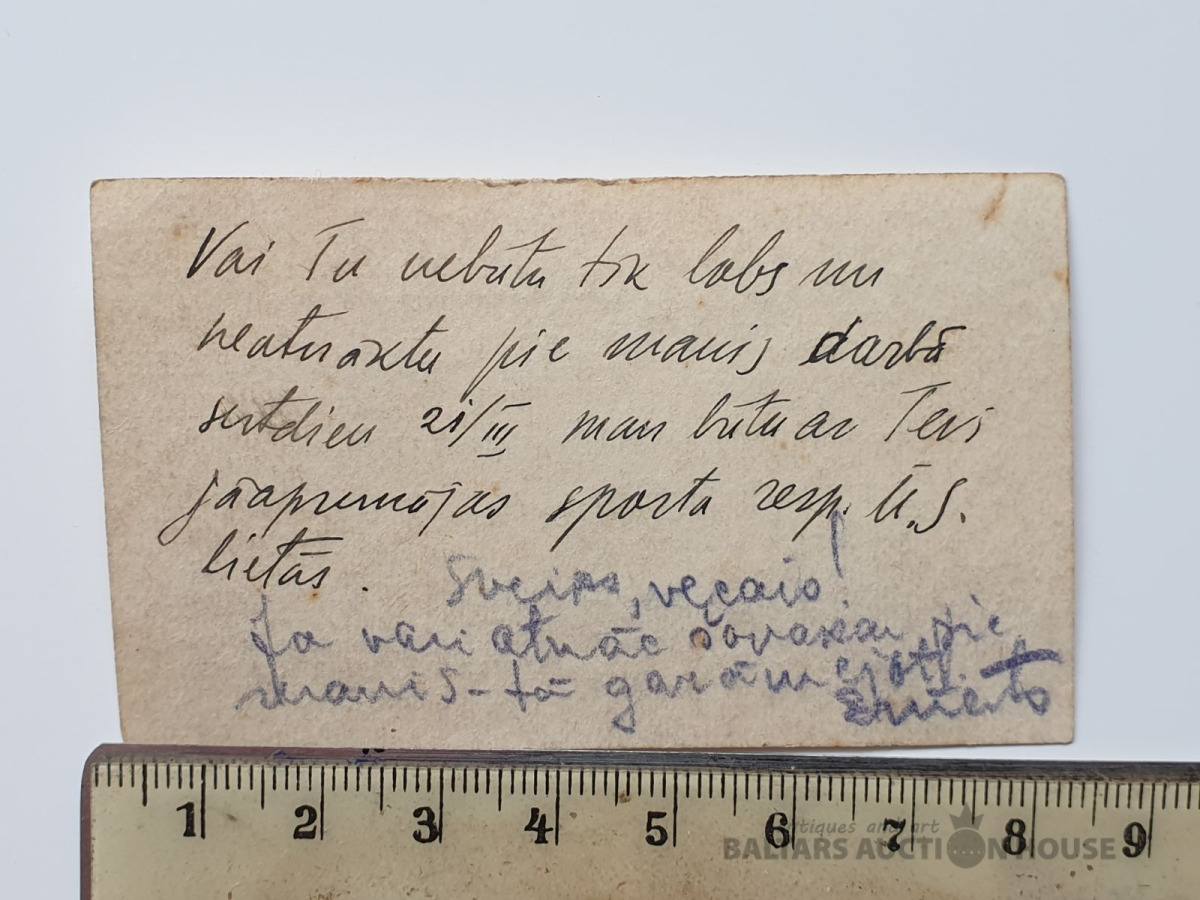 Vai Tu nebūtu tik labs un
neatnāktu pie manis darbā
sestdien 21/III man būtu ar Tevi
jāaprunājas sporta resp. Ū.S.
lietās.
Sveiks, vecais!
Ja vari atnāc šovakar pie
manis - tā garāmejot.
Ernests
1 2 3 4 5 6 7 8 9
antiques and art
BALIARS AUCTION HOUSE